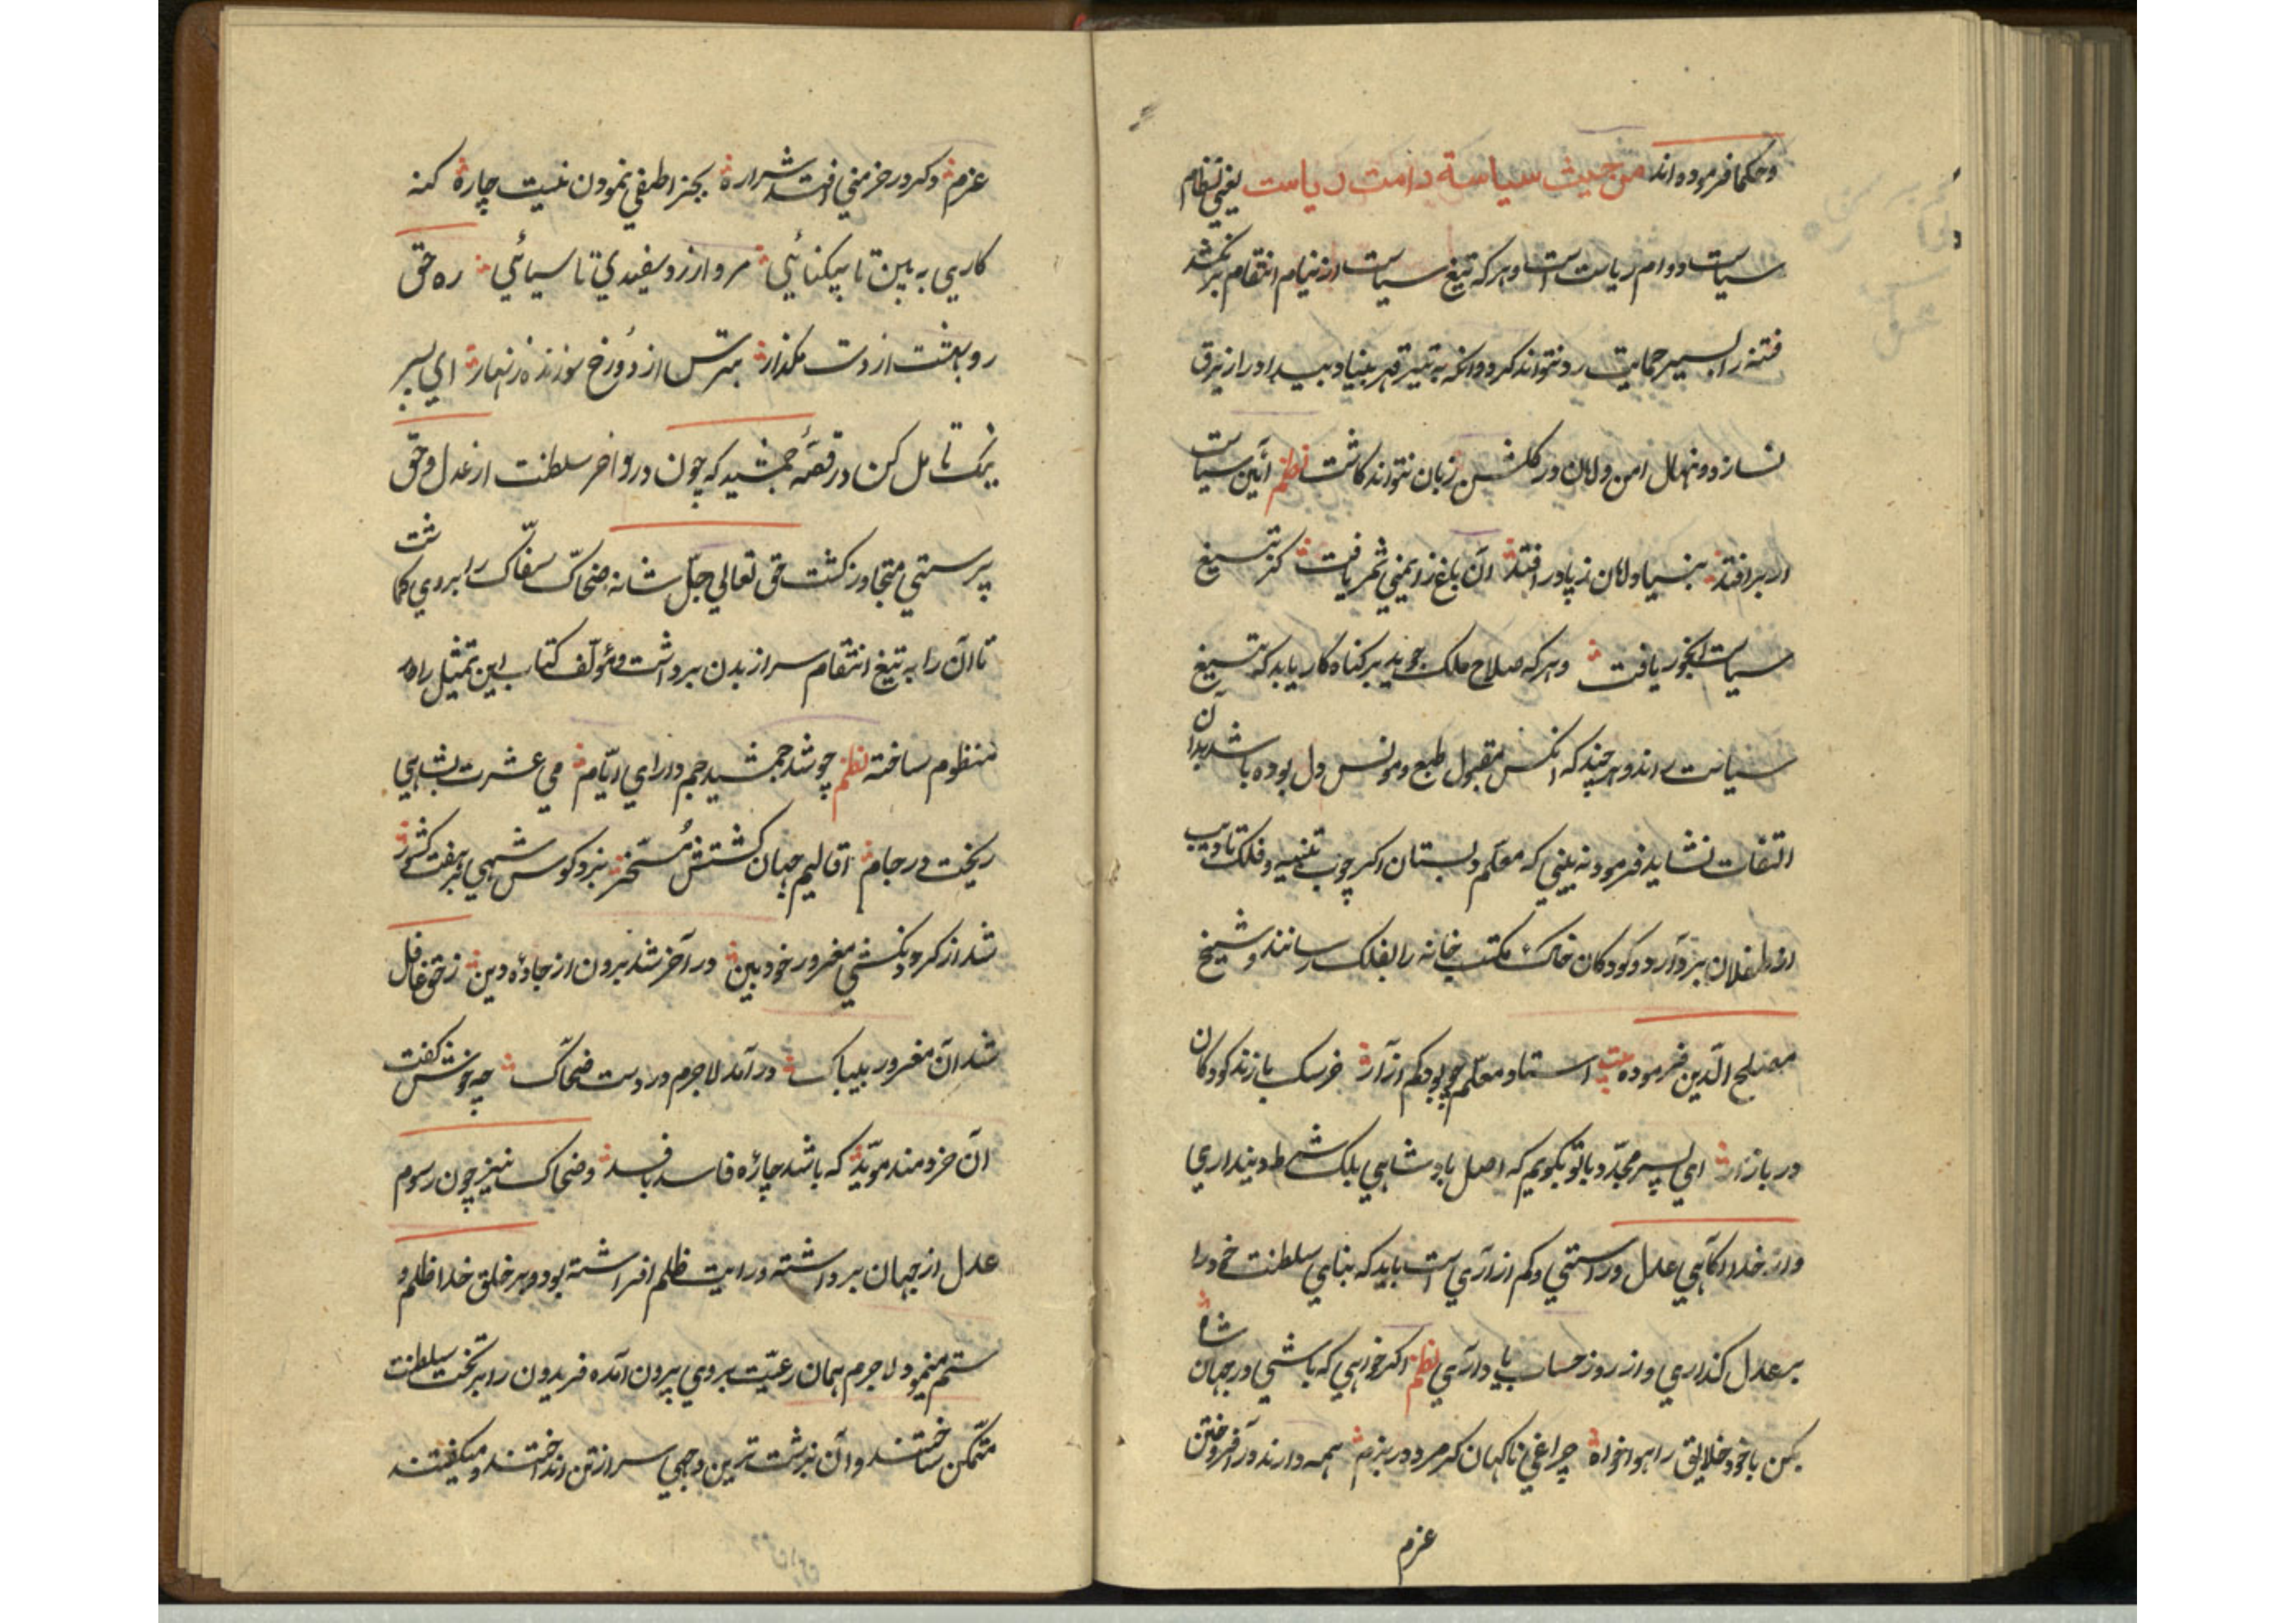 وحکما فرموده اند من حیث سیاسة دامت ریاست یعنی نظام
سیاست دوام ریاست است وهر که تیغ سیاست از نیام انتقام بر نکشد
فتنه را بسپر حمایت رد نتواند کرد وانکه به تیر قهر بنیاد بیداد را از
نسازد ونهال امن وامان در کلشن زبان نتواند کاشت نظم آئین سیاست
ار برافتد بنیاد امان ز پا در افتد آن باغ ز ایمنی ثمر یافت کز تیغ
سیاست آبخور یافت وهر که صلاح ملک جوید بر کناه کار باید که تیغ
سیاست راند وهر چند که انکس مقبول طبع ومونس دل بوده باشد بدان
التفات نشاید فرمود نه بینی که معلم دبستان اکر چوب تنبیه وفلک تادیب
از طفلان بردارد کودکان خاک مکتب خانه را بفلک رسانند وشیخ
مصلح الدین فرموده بیت استاد معلم چو بود کم آزار خرسک بازند کودکان
در بازار ای پسر مجدد با تو بکویم که اصل پادشاهی بلک شرط دینداری
واز خدا آکاهی عدل وراستی وکم ازاری است باید که بنای سلطنت خود را
بر عدل کذاری واز روز حساب یاد آری نظم اکر خواهی که باشی در جهان شاه
بکن با خود خلایق را هواخواه چراغی ناکهان کر مرد در بزم همه دارند در افروختن
عزم
عزم وکر در خرمنی افتد شراره بجز اطفی نمودن نیست چاره کنه
کاری به بین تا بیکنائی مرو از زد سفیدی تا سیائی ره حق
رو بهشت از دست مکذار بترس از دوزخ سوزنده زنهار ای پسر
نیک تامل کن در قصهٔ جمشید که چون در اواخر سلطنت از عدل وحق
پرستی متجاوز کشت حق تعالی جل شانه ضحاک سفاک را بروی کماشت
تا آن را به تیغ انتقام سر از بدن برداشت ومؤلف کتاب این تمثیل را
منظوم ساخته نظم چو شد جمشید جم دارای ایام می عشرت بشاهی
ریخت در جام اقالیم جهان کشتش مسخر بزد کوس شهی بر هفت کشور
شد از کردنکشی مغرور خود بین در آخر شد برون از جادهٔ دین ز حق غافل
شد آن مغرور بیباک در آمد لاجرم در دست ضحاک چه خوش کفت
آن خردمند موید که باشد چارهٔ فاسد بافسد وضحاک نیز چون رسوم
عدل از جهان برداشته ورایت ظلم افراشته بود وبر خلق خدا ظلم و
ستم مینمود لاجرم همان رعیت بروی بیرون آمده فریدون را بر تخت سلطنت
متمکن ساختند وآن بزشت ترین وجهی سر از تن انداختند ومیکفتند